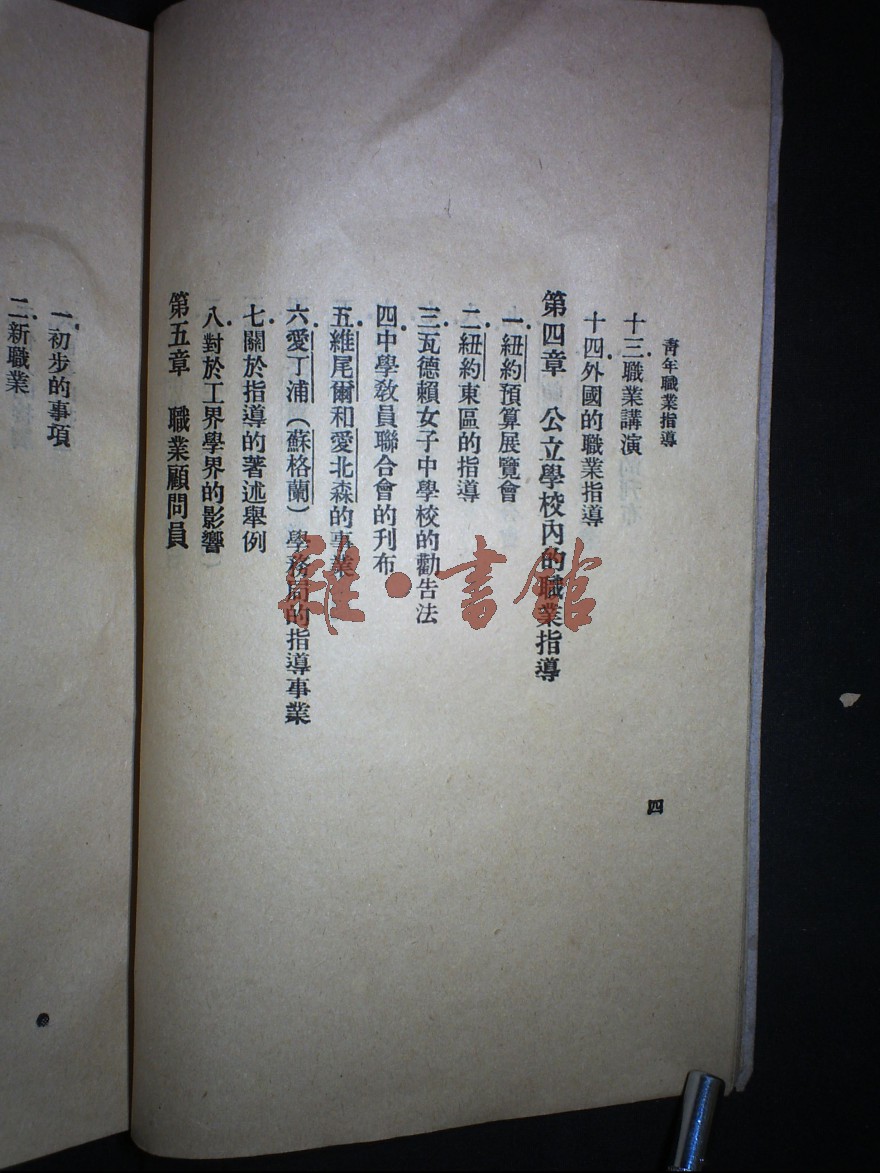 青年職業指導
十三.職業講演
十四.外國的職業指導
第四章 公立學校內的職業指導
一.紐約預算展覽會
二.紐約東區的指導
三.瓦德賴女子中學校的勸告法
四.中學教員聯合會的刊布
五.維尾爾和愛北森的事業
六.愛丁浦(蘇格蘭)學務局的指導事業
七.關於指導的著述舉例
八.對於工界學界的影響
第五章 職業顧問員
四
一.初步的事項
二.新職業
雜·書館